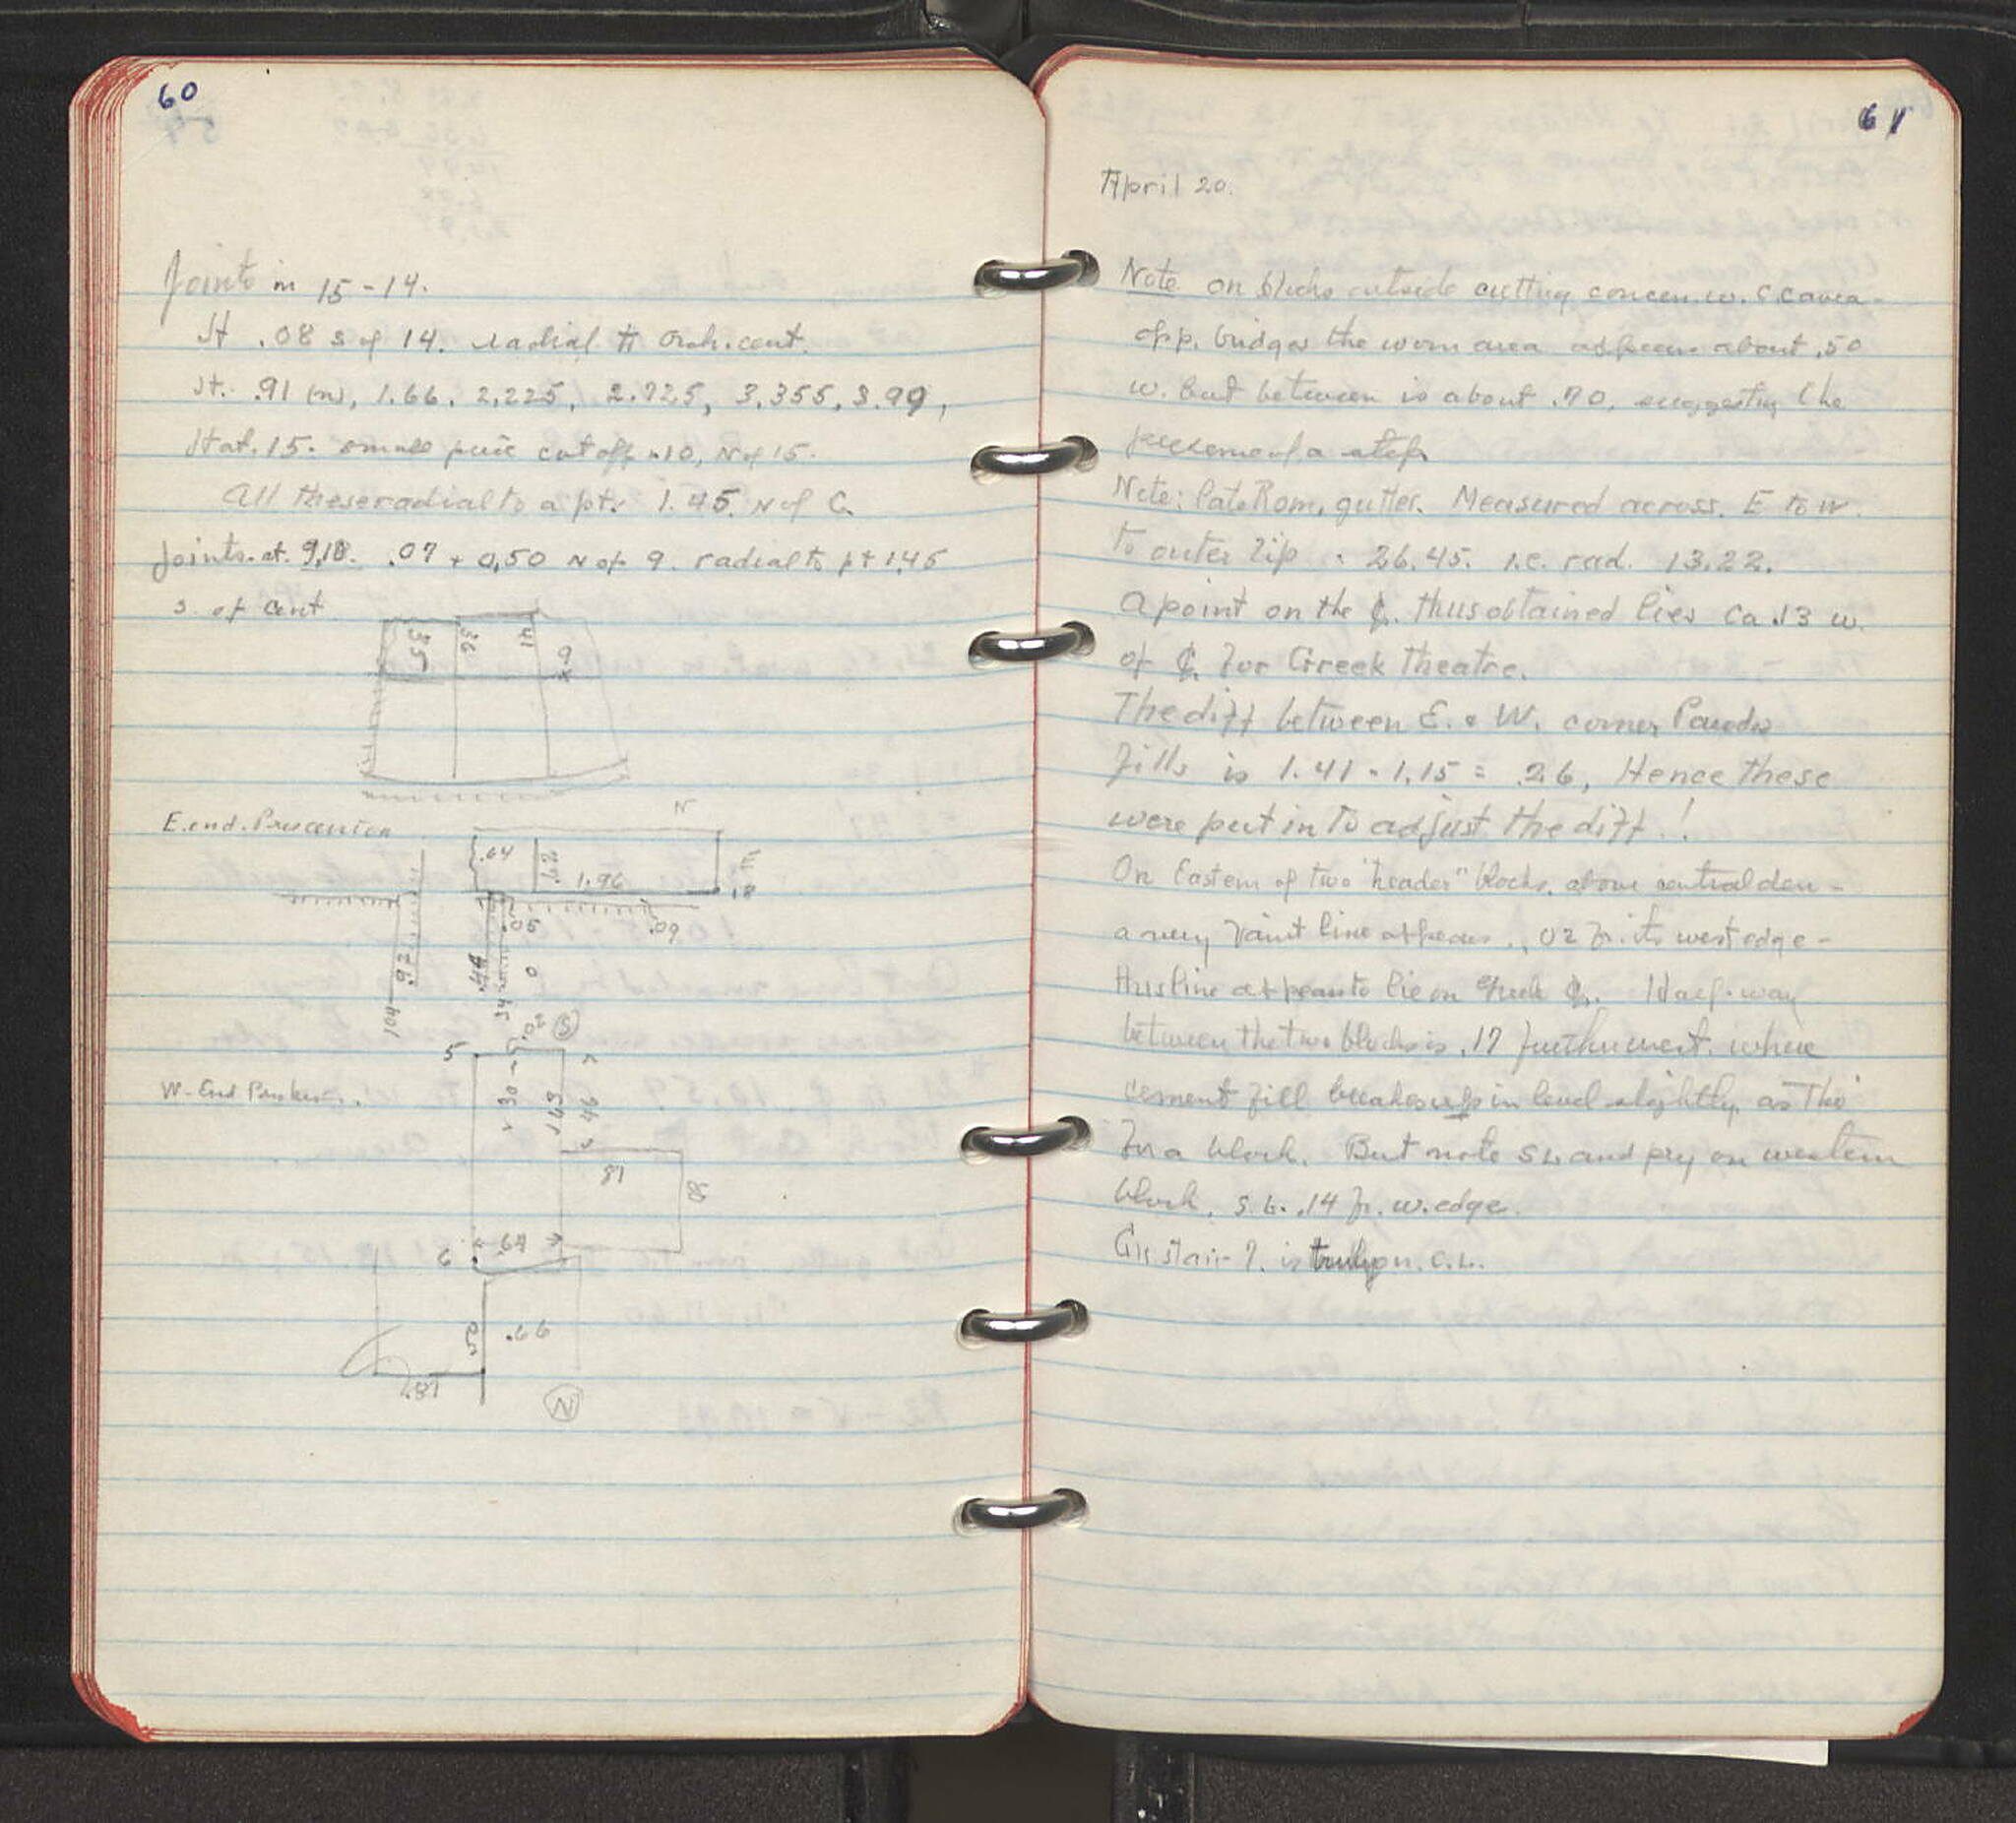 60
Joints in 15-14.
Jt .08 s of 14. radial to Orch. cent.
Jt. .91 (N), 1.66. 2,225, 2.725, 3.355, 3.99,
Jt at. 15. small piece cut off .10, N of 15.
All these radial to a pt. 1.45 N of C.
Joints. at. 9,10. .07 + 0,50 N of 9. radial to pt 1,45
s. of Cent
35
36
41
9
E. end.
N
.64
.62
1.96
.05
.09
.92
104
.44
34
0
.02
S
5
130
163
46
W. End
81
6
.67
.66
.81
N
61
April 20.
Note on blocks outside cutting w. cavea -
opp. bridges the worn area appears about .50
w. but between is about .70, suggesting the
presence of a step
Note: Late Rom, gutter. Measured across. E to W.
to outer lip . 26.45. i.e. rad. 13.22.
A point on the ℄. thus obtained lies ca .13 w.
of ℄ for Greek Theatre.
The diff between E. & W. corner
fills is 1.41 - 1.15 = .26, Hence these
were put in to adjust the diff.!
On Eastern of two "header" blocks, above central
a very faint line appears., .02 fr. its west edge -
this line appears to lie on Greek ℄. Half-way
between the two blocks is .17 further west. where
cement fill breaks up in level slightly, as tho
for a block. But note SL and pry on western
block, S.L. .14 fr. w. edge.
Gk stair 7. is truly on. C.L.